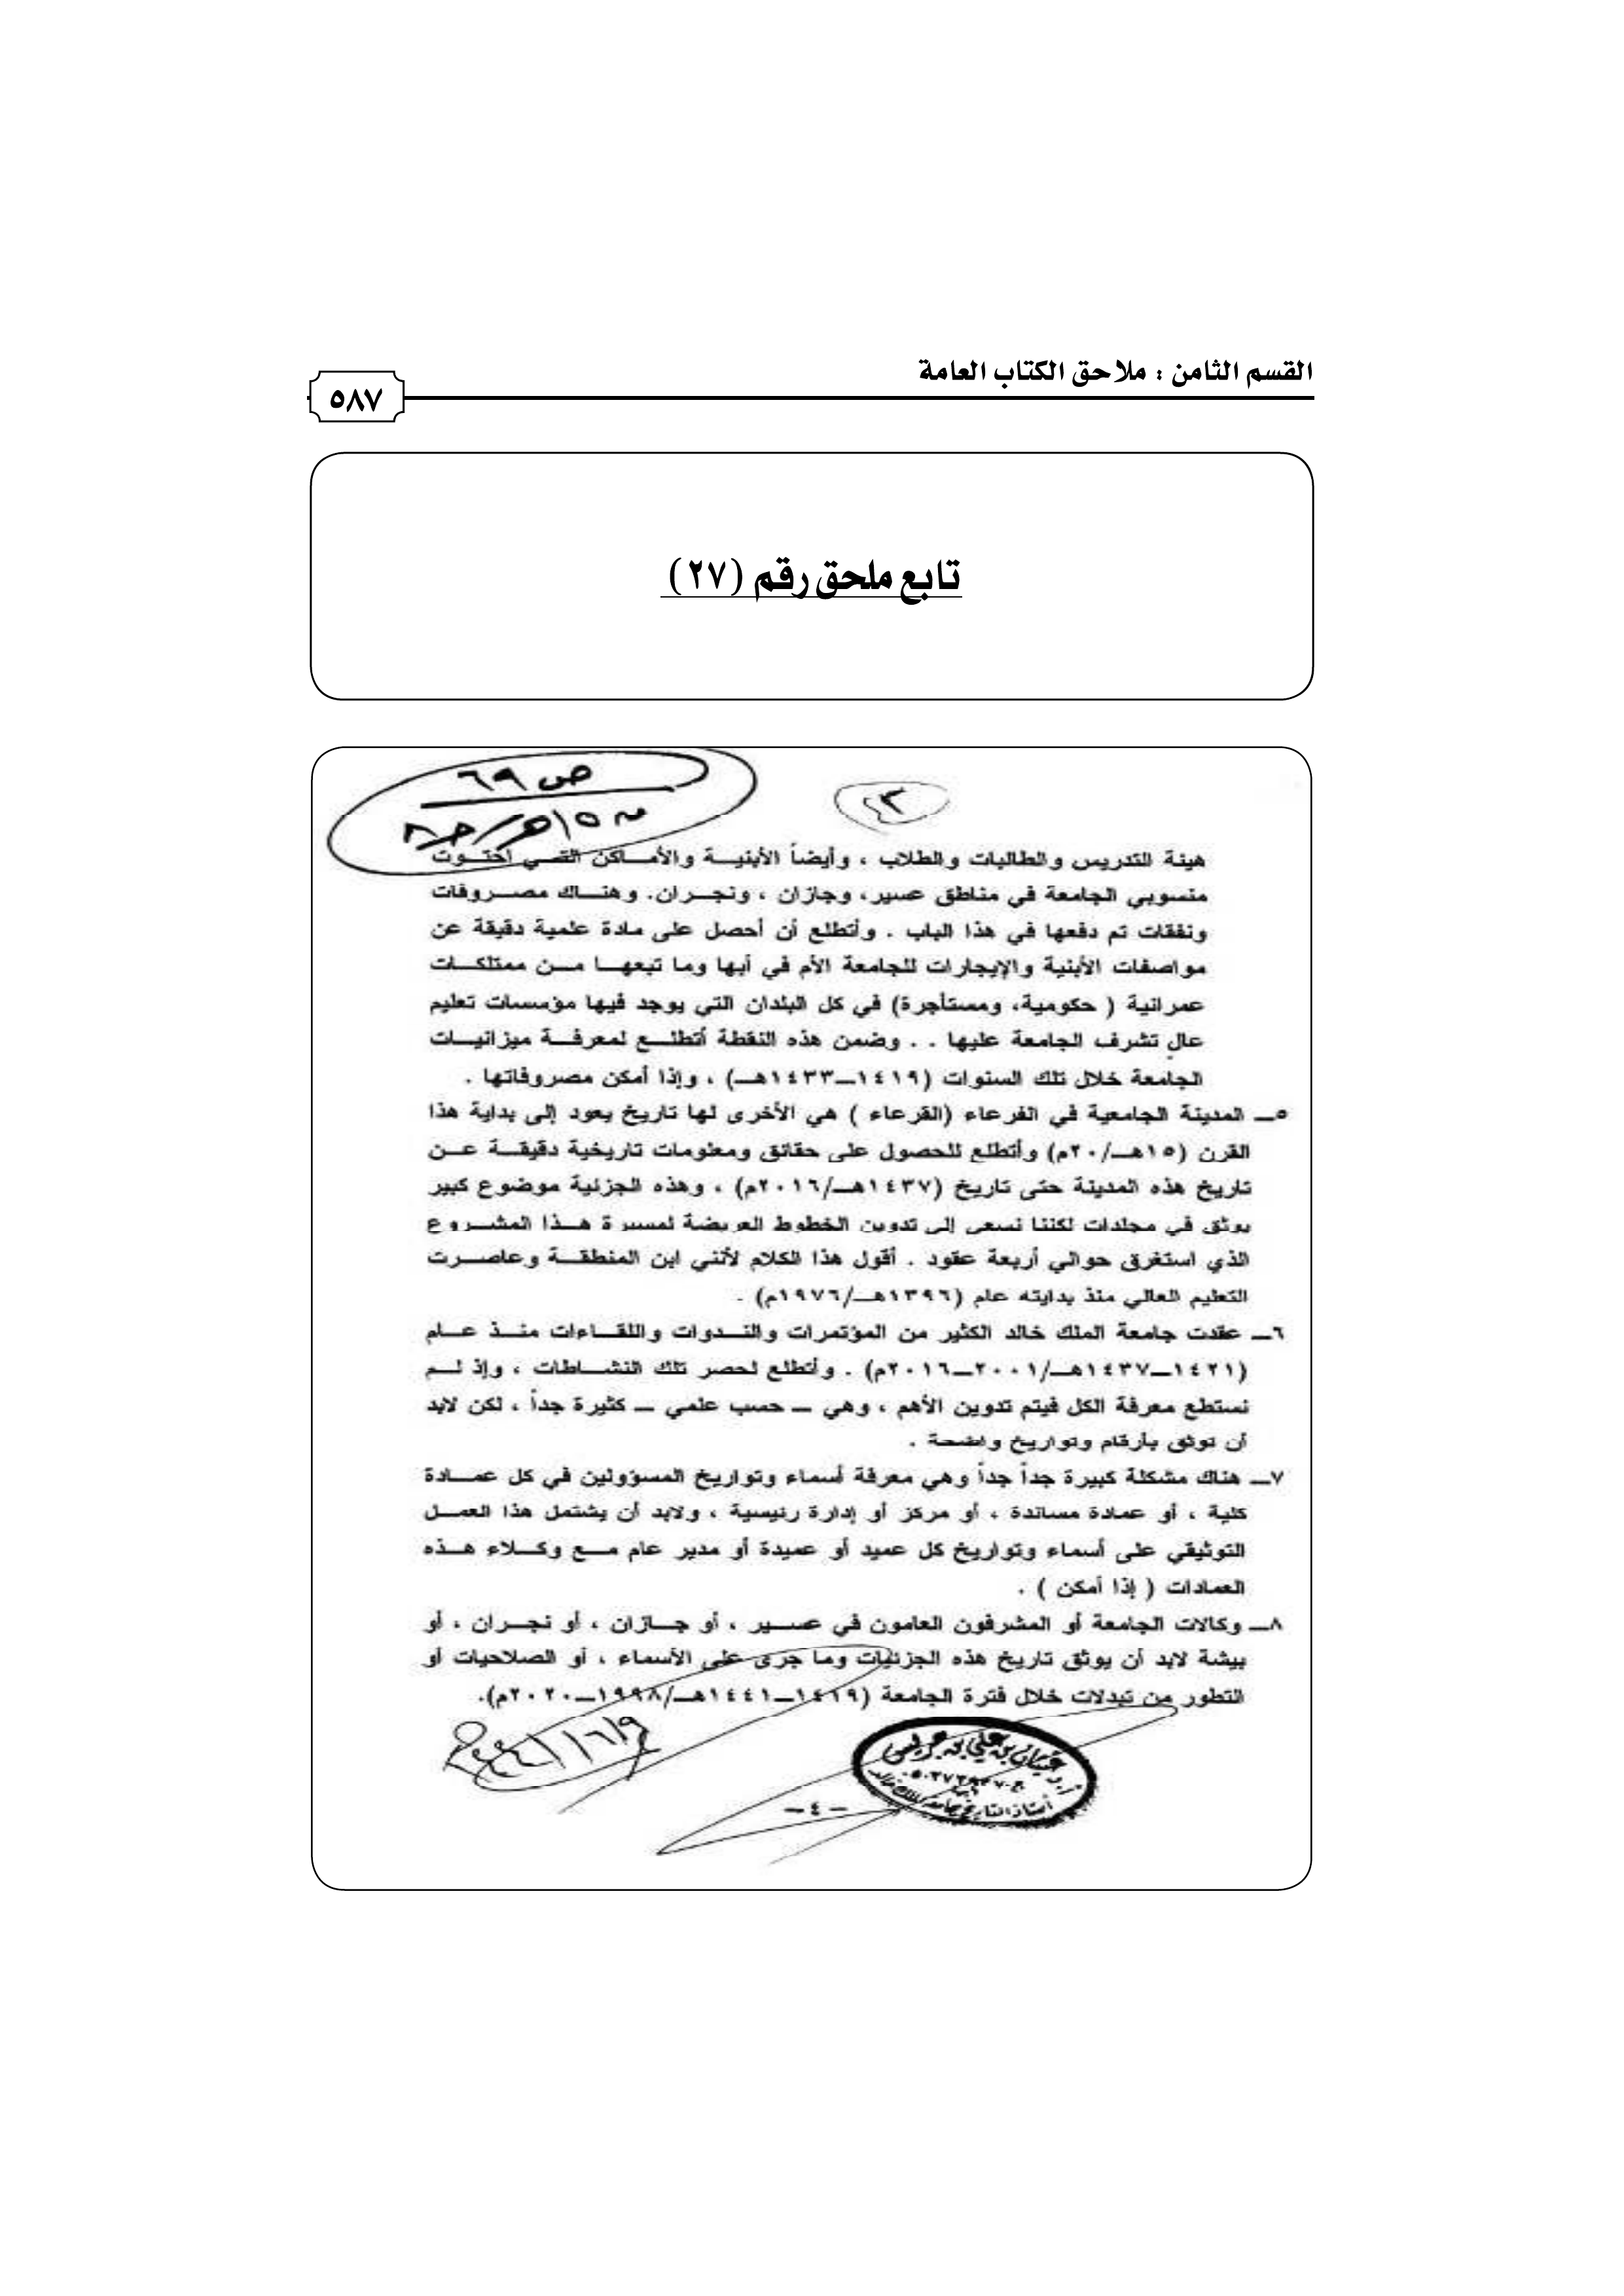 القسم الثامن : ملاحق الكتاب العامة
٥٨٧
تابع ملحق رقم (٢٧)
ص ٦٩
٣
هيئة التدريس والطالبات والطلاب ، وأيضاً الأبنيـــة والأمـــاكن التـــي احتـــوت
منسوبي الجامعة في مناطق عسير، وجازان ، ونجـــران. وهنـــاك مصـــروفات
ونفقات تم دفعها في هذا الباب . وأتطلع أن أحصل على مادة علمية دقيقة عن
مواصفات الأبنية والإيجارات للجامعة الأم في أبها وما تبعهـــا مـــن ممتلكـــات
عمرانية ( حكومية، ومستأجرة) في كل البلدان التي يوجد فيها مؤسسات تعليم
عالٍ تشرف الجامعة عليها . . وضمن هذه النقطة أتطلـــع لمعرفـــة ميزانيـــات
الجامعة خلال تلك السنوات (١٤١٩ــ١٤٣٣هـــ) ، وإذا أمكن مصروفاتها .
٥ــ المدينة الجامعية في الفرعاء (القرعاء ) هي الأخرى لها تاريخ يعود إلى بداية هذا
القرن (١٥هـــ/٢٠م) وأتطلع للحصول على حقائق ومعلومات تاريخية دقيقـــة عـــن
تاريخ هذه المدينة حتى تاريخ (١٤٣٧هـــ/٢٠١٦م) ، وهذه الجزئية موضوع كبير
يوثق في مجلدات لكننا نسعى إلى تدوين الخطوط العريضة لمسيرة هـــذا المشـــروع
الذي استغرق حوالي أربعة عقود . أقول هذا الكلام لأنني ابن المنطقـــة وعاصـــرت
التعليم العالي منذ بدايته عام (١٣٩٦هـــ/١٩٧٦م) .
٦ــ عقدت جامعة الملك خالد الكثير من المؤتمرات والنـــدوات واللقـــاءات منـــذ عـــام
(١٤٢١ــ١٤٣٧هـــ/٢٠٠١ــ٢٠١٦م) . وأتطلع لحصر تلك النشـــاطات ، وإذ لـــم
نستطع معرفة الكل فيتم تدوين الأهم ، وهي ــ حسب علمي ــ كثيرة جداً ، لكن لابد
أن توثق بأرقام وتواريخ واضحة .
٧ــ هناك مشكلة كبيرة جداً جداً وهي معرفة أسماء وتواريخ المسؤولين في كل عمـــادة
كلية ، أو عمادة مساندة ، أو مركز أو إدارة رئيسية ، ولابد أن يشتمل هذا العمـــل
التوثيقي على أسماء وتواريخ كل عميد أو عميدة أو مدير عام مـــع وكـــلاء هـــذه
العمادات ( إذا أمكن ) .
٨ــ وكالات الجامعة أو المشرفون العامون في عســـير ، أو جـــازان ، أو نجـــران ، أو
بيشة لابد أن يوثق تاريخ هذه الجزئيات وما جرى على الأسماء ، أو الصلاحيات أو
التطور من تبدلات خلال فترة الجامعة (١٤١٩ــ١٤٤١هـــ/١٩٩٨ــ٢٠٢٠م).
أ.د غيثان بن علي بن جريس
أستاذ التاريخ بجامعة الملك خالد
–٤–